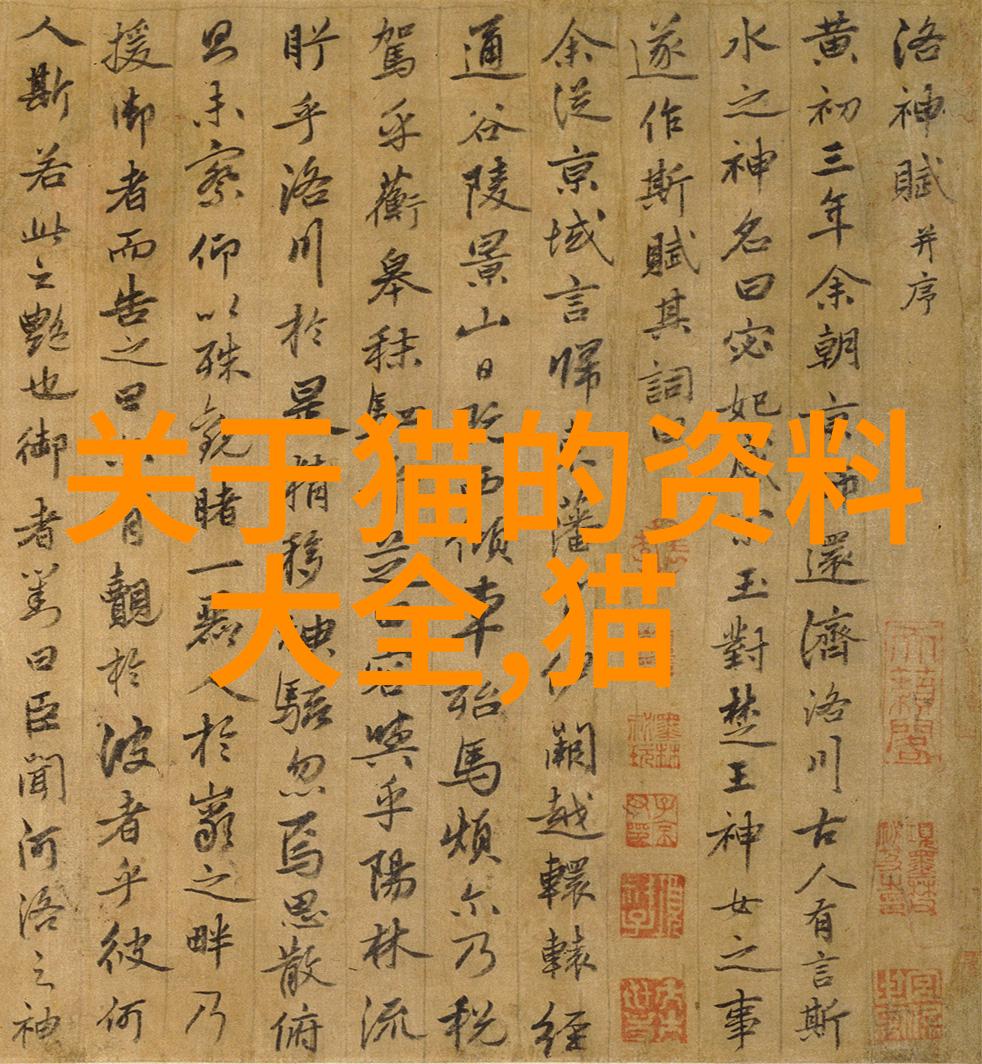 洛神賦 并序
黄初三年余朝京師還濟洛川古人有言斯
水之神名曰宓妃感宋玉對楚王神女之事
遂作斯賦其詞曰
余從京域言歸藩伊闕越轘轅經
通谷陵景山日既西傾車殆馬煩尔乃税
駕乎蘅皋秣駟乎芝田容與乎陽林流
眄乎洛川於是精移神駭忽焉思散俯
則未察仰以殊觀睹一麗人於巖之畔乃
援御者而告之曰有覿於彼者乎彼何
人斯若此之艷也御者對曰臣聞河洛之神
关于猫的资料
大全,猫